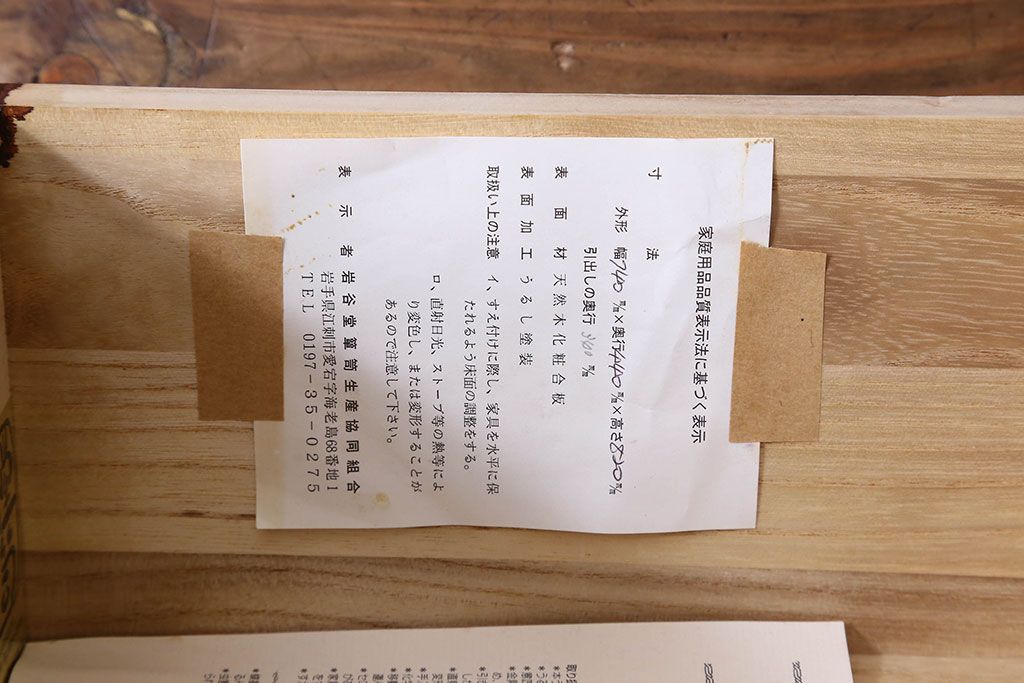 家庭用品品質表示法に基づく表示
寸法
外形 幅740㎜×奥行440㎜×高さ820㎜
引出しの奥行 360 ㎜
表面材 天然木化粧合板
表面加工 うるし塗装
取扱い上の注意 イ、すえ付けに際し、家具を水平に保
たれるよう床面の調整をする。
ロ、直射日光、ストーブ等の熱等によ
り変色し、または変形することが
あるので注意して下さい。
表示者 岩谷堂箪笥生産協同組合
岩手県江刺市愛宕字海老島68番地1
TEL 0197-35-0275